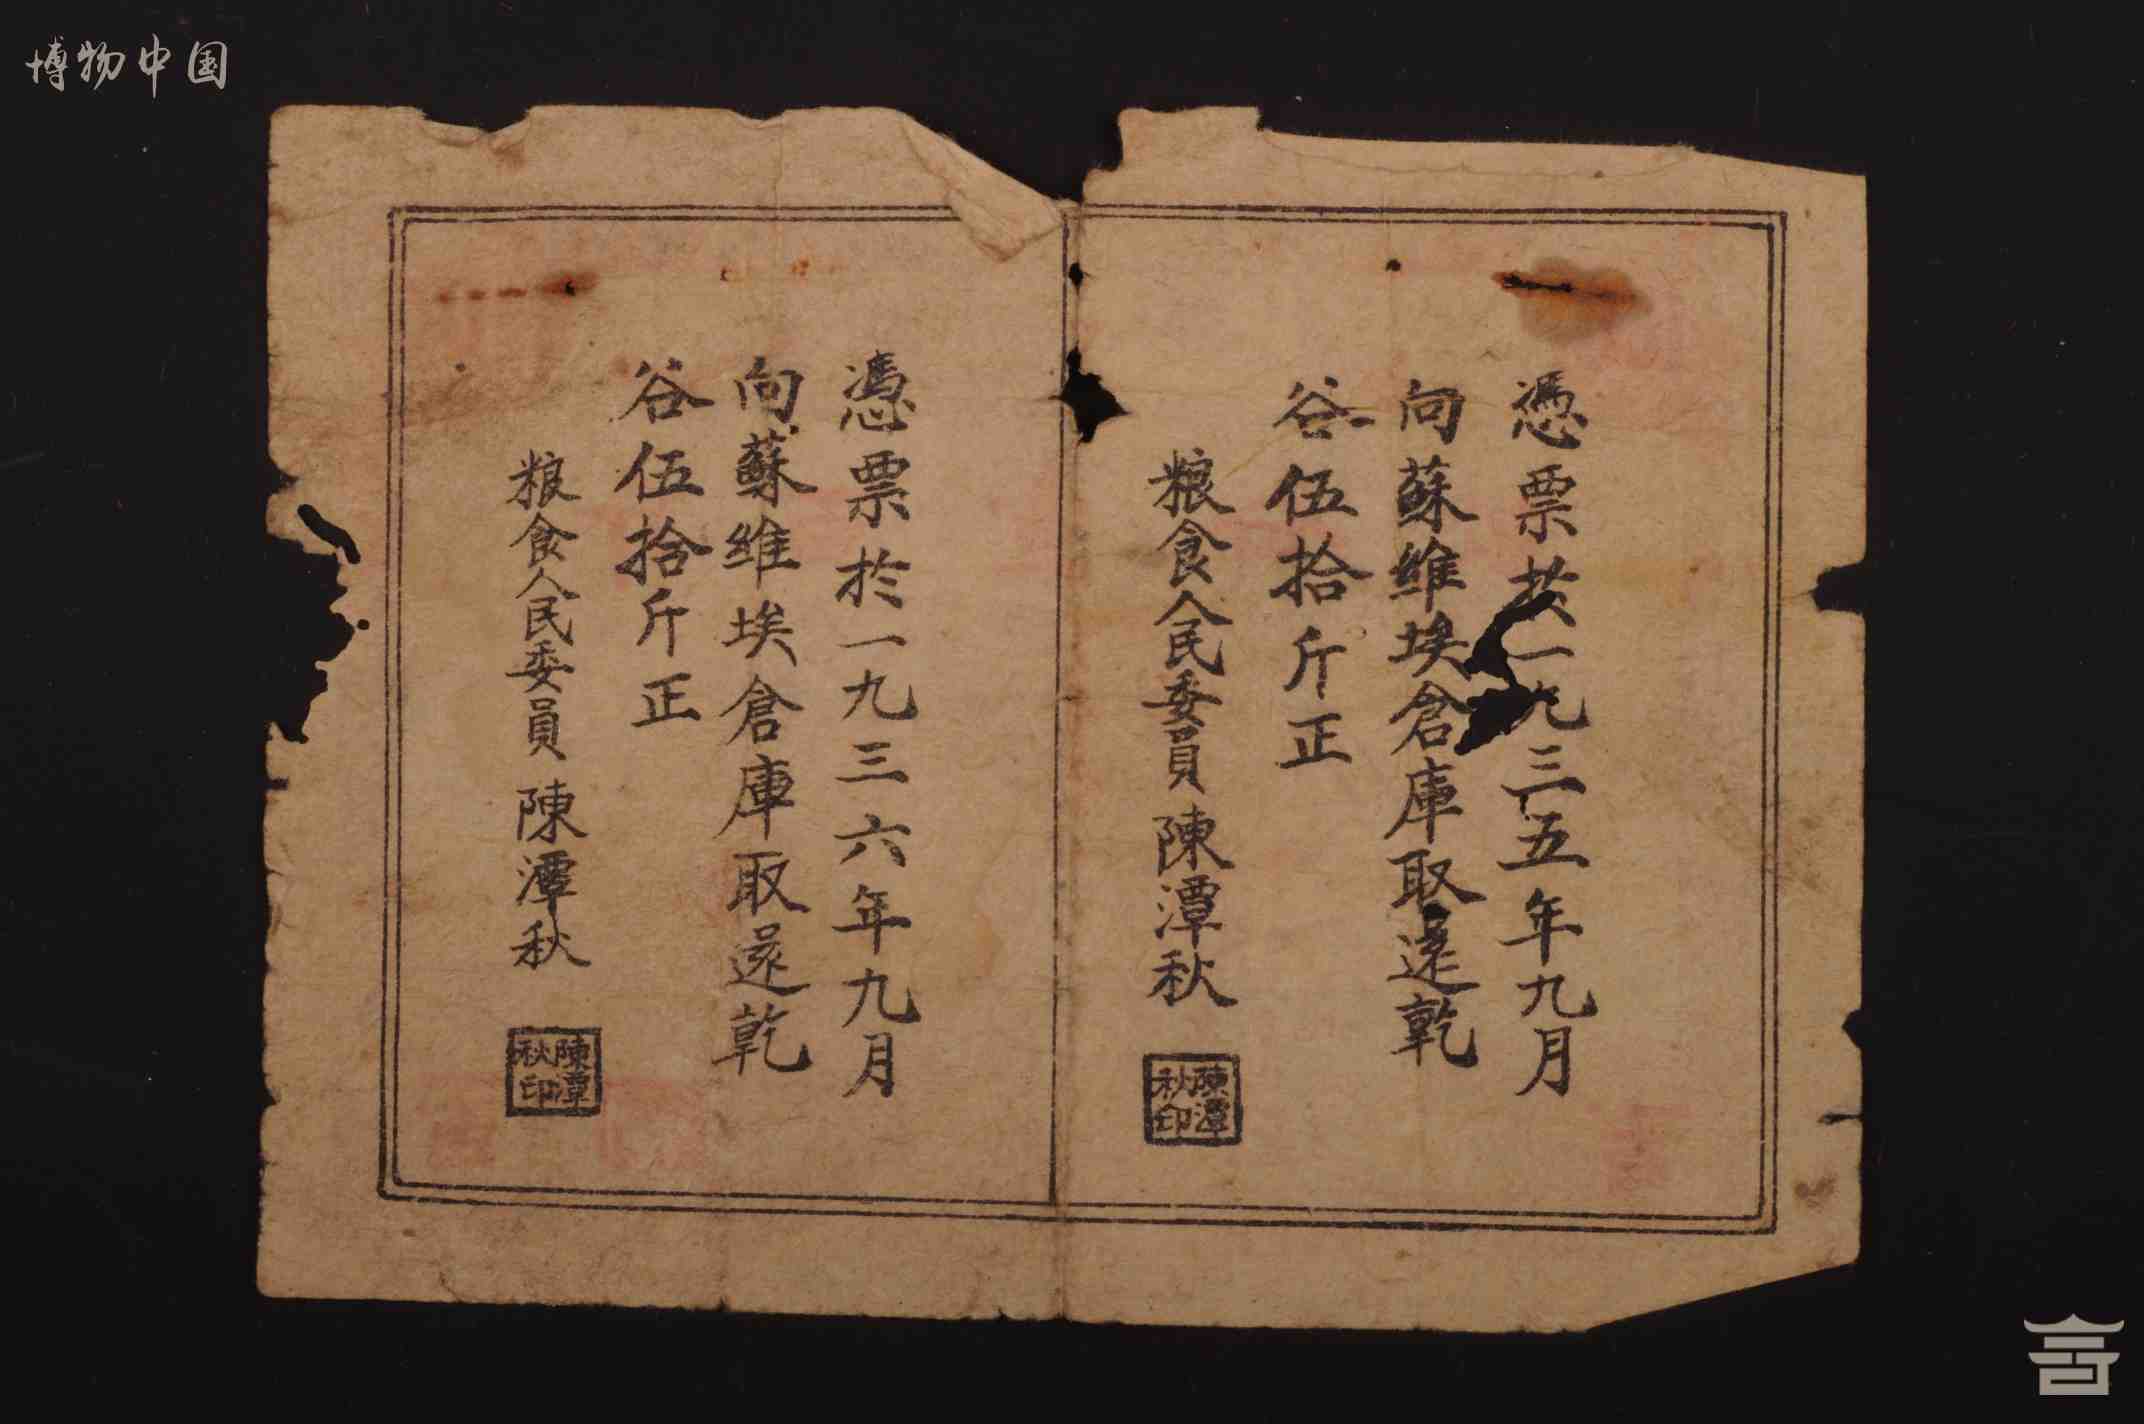 博物中国
憑票於一九三五年九月
向蘇维埃倉庫取还乾
谷伍拾斤正
粮食人民委員陳潭秋
陳潭秋印
憑票於一九三六年九月
向蘇维埃倉庫取还乾
谷伍拾斤正
粮食人民委員陳潭秋
陳潭秋印